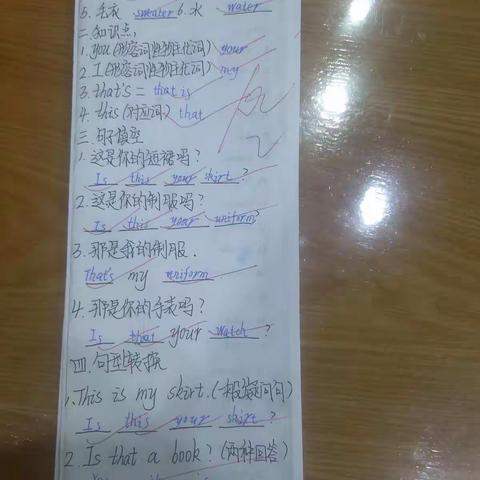 5. 毛衣 sweater 6. 水 water
二.知识点,
1. you(形容词性物主代词) your
2. I(形容词性物主代词) my
3. that's = that is
4. this(对应词) that
三.句子填空
1. 这是你的短裙吗?
Is this your skirt?
2. 这是你的制服吗?
Is this your uniform?
3. 那是我的制服.
That's my uniform
4. 那是你的手表吗?
Is that your watch?
四.句型转换
1. This is my skirt.(一般疑问句)
Is this your skirt?
2. Is that a book?(两种回答)